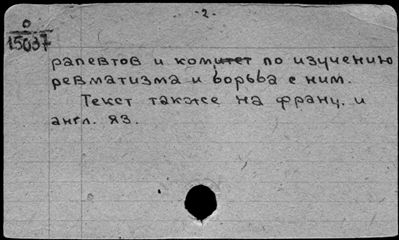 - 2 -
0
15037
рапевтов и комитет по изучению
ревматизма и борьба с ним.
Текст также на франц. и
англ. яз.